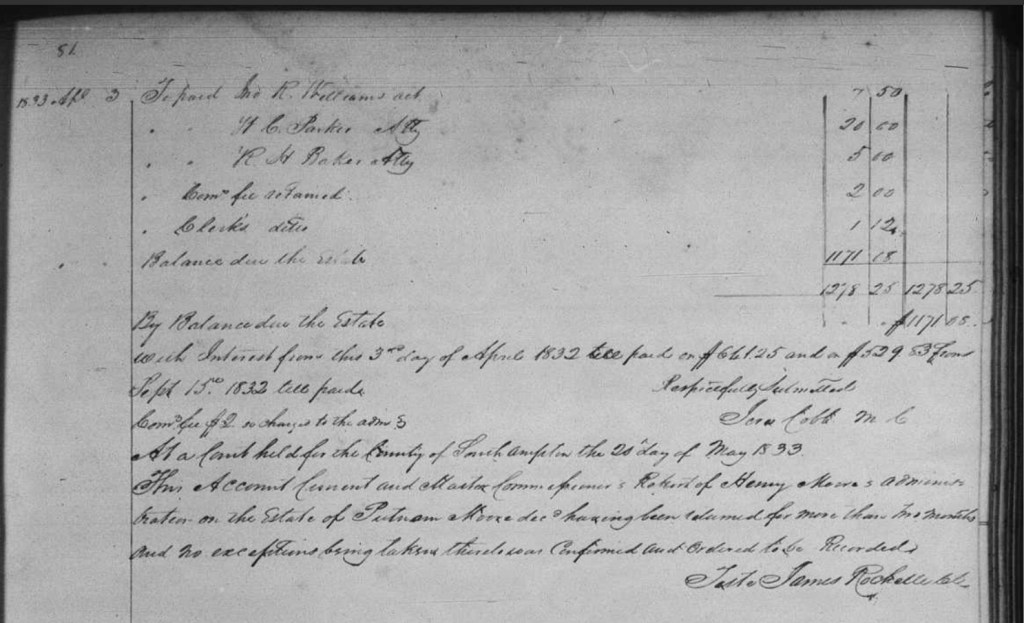 51
1833 Apl 3 To paid Jno R. Williams act 7 50
" " W C. Parker Atty 20 00
" " R H Baker Atty 5 00
" Comr fee returned 2 00
" Clerks ditto 1 12
" " Balance due the Estate 1171 08
1278 25 1278 25
By Balance due the Estate $1171 08
with Interest from this 3rd day of April 1832 till paid on $661.25 and on $529.83 from
Sept 15th 1832 till paid Respectfully Submitted
Comr fee $2 is charged to the adm Cobb M C
At a Court held for the County of Southampton the 20th day of May 1833
This Account Current and Master Commissioner's Report of Henry Moore's adminis
tration on the Estate of Putnam Moore decd having been returned for more than two months
and no exceptions being taken thereto was Confirmed and Ordered to be Recorded
Teste James Rochelle